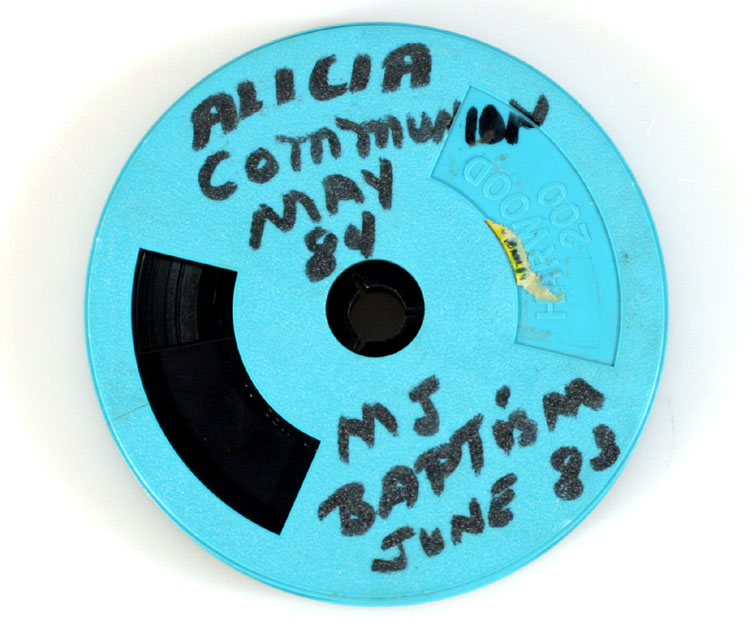 ALICIA
COMMUNION
MAY
84
HARWOOD
200
MJ
BAPTiSM
JUNE 83